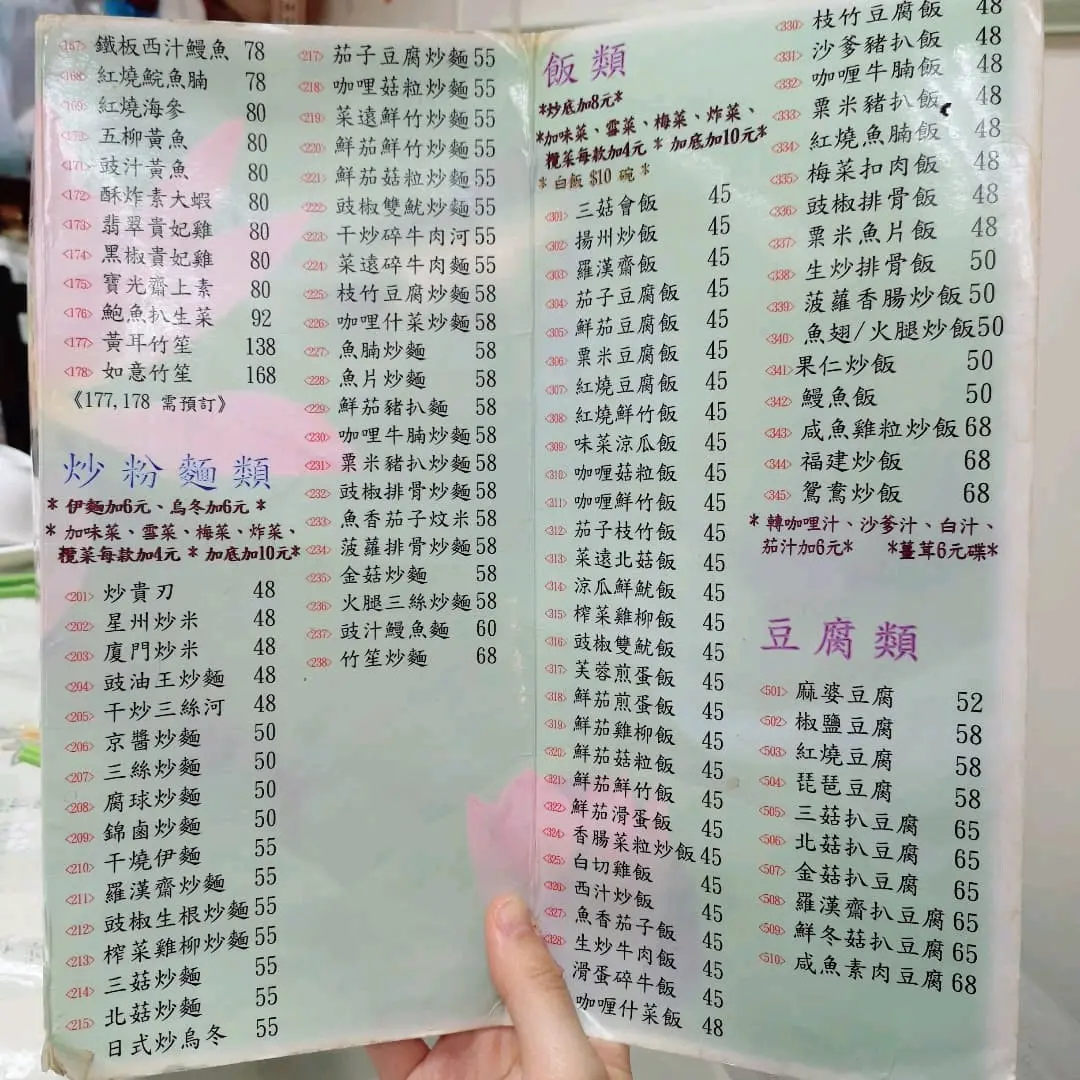 <167> 鐵板西汁鰻魚 78
<168> 紅燒鯇魚腩 78
<169> 紅燒海參 80
五柳黃魚 80
<171> 豉汁黃魚 80
<172> 酥炸素大蝦 80
<173> 翡翠貴妃雞 80
<174> 黑椒貴妃雞 80
<175> 寶光齋上素 80
<176> 鮑魚扒生菜 92
<177> 黃耳竹笙 138
<178> 如意竹笙 168
《177,178 需預訂》
炒粉麵類
* 伊麵加6元、烏冬加6元 *
* 加味菜、雪菜、梅菜、炸菜、
欖菜每款加4元 * 加底加10元*
<201> 炒貴刃 48
<202> 星州炒米 48
<203> 廈門炒米 48
<204> 豉油王炒麵 48
<205> 干炒三絲河 48
<206> 京醬炒麵 50
<207> 三絲炒麵 50
<208> 腐球炒麵 50
<209> 錦鹵炒麵 50
<210> 干燒伊麵 55
<211> 羅漢齋炒麵 55
<212> 豉椒生根炒麵 55
<213> 榨菜雞柳炒麵 55
<214> 三菇炒麵 55
<215> 北菇炒麵 55
日式炒烏冬 55
<217> 茄子豆腐炒麵 55
<218> 咖哩菇粒炒麵 55
<219> 菜遠鮮竹炒麵 55
<220> 鮮茄鮮竹炒麵 55
<221> 鮮茄菇粒炒麵 55
<222> 豉椒雙魷炒麵 55
<223> 干炒碎牛肉河 55
<224> 菜遠碎牛肉麵 55
<225> 枝竹豆腐炒麵 58
<226> 咖哩什菜炒麵 58
<227> 魚腩炒麵 58
<228> 魚片炒麵 58
<229> 鮮茄豬扒麵 58
<230> 咖哩牛腩炒麵 58
<231> 粟米豬扒炒麵 58
<232> 豉椒排骨炒麵 58
<233> 魚香茄子炆米 58
<234> 菠蘿排骨炒麵 58
<235> 金菇炒麵 58
<236> 火腿三絲炒麵 58
<237> 豉汁鰻魚麵 60
<238> 竹笙炒麵 68
飯類
*炒底加8元*
*加味菜、雪菜、梅菜、炸菜、
欖菜每款加4元 * 加底加10元*
* 白飯 $10 碗 *
<301> 三菇會飯 45
<302> 揚州炒飯 45
<303> 羅漢齋飯 45
<304> 茄子豆腐飯 45
<305> 鮮茄豆腐飯 45
<306> 粟米豆腐飯 45
<307> 紅燒豆腐飯 45
<308> 紅燒鮮竹飯 45
<309> 味菜涼瓜飯 45
<310> 咖喱菇粒飯 45
<311> 咖喱鮮竹飯 45
<312> 茄子枝竹飯 45
<313> 菜遠北菇飯 45
<314> 涼瓜鮮魷飯 45
<315> 榨菜雞柳飯 45
<316> 豉椒雙魷飯 45
<317> 芙蓉煎蛋飯 45
<318> 鮮茄煎蛋飯 45
<319> 鮮茄雞柳飯 45
<320> 鮮茄菇粒飯 45
<321> 鮮茄鮮竹飯 45
<322> 鮮茄滑蛋飯 45
<324> 香腸菜粒炒飯 45
<325> 白切雞飯 45
<326> 西汁炒飯 45
<327> 魚香茄子飯 45
<328> 生炒牛肉飯 45
滑蛋碎牛飯 45
咖喱什菜飯 48
<330> 枝竹豆腐飯 48
<331> 沙爹豬扒飯 48
<332> 咖喱牛腩飯 48
<333> 粟米豬扒飯 48
<334> 紅燒魚腩飯 48
<335> 梅菜扣肉飯 48
<336> 豉椒排骨飯 48
<337> 粟米魚片飯 48
<338> 生炒排骨飯 50
<339> 菠蘿香腸炒飯 50
<340> 魚翅/火腿炒飯 50
<341> 果仁炒飯 50
<342> 鰻魚飯 50
<343> 咸魚雞粒炒飯 68
<344> 福建炒飯 68
<345> 鴛鴦炒飯 68
* 轉咖哩汁、沙爹汁、白汁、
茄汁加6元* *薑茸6元碟*
豆腐類
<501> 麻婆豆腐 52
<502> 椒鹽豆腐 58
<503> 紅燒豆腐 58
<504> 琵琶豆腐 58
<505> 三菇扒豆腐 65
<506> 北菇扒豆腐 65
<507> 金菇扒豆腐 65
<508> 羅漢齋扒豆腐 65
<509> 鮮冬菇扒豆腐 65
<510> 咸魚素肉豆腐 68